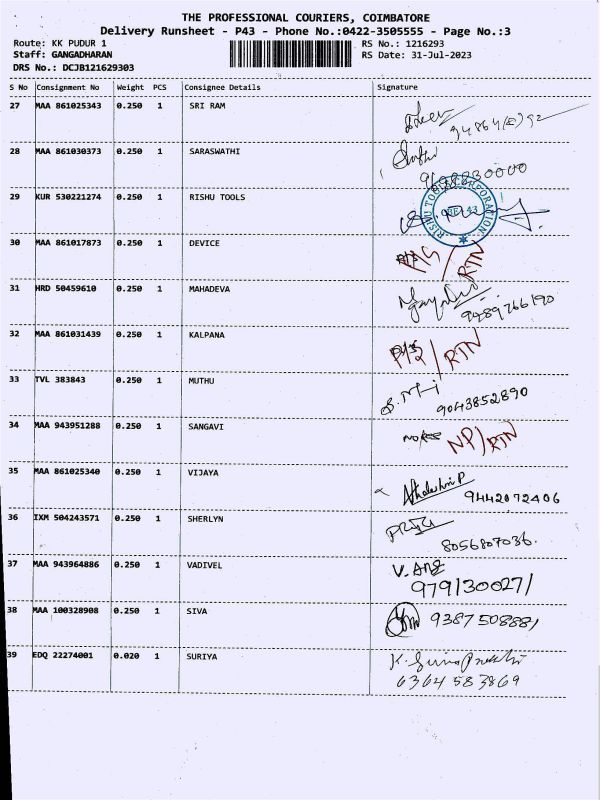 THE PROFESSIONAL COURIERS, COIMBATORE
Delivery Runsheet - P43 - Phone No.:0422-3505555 - Page No.:3
Route: KK PUDUR 1 RS No.: 1216293
Staff: GANGADHARAN RS Date: 31-Jul-2023
DRS No.: DCJB121629303
S No Consignment No Weight PCS Consignee Details Signature
27 MAA 861025343 0.250 1 SRI RAM
28 MAA 861030373 0.250 1 SARASWATHI
9698830000
29 KUR 530221274 0.250 1 RISHU TOOLS
RISHU TOOLS CORPORATION
30 MAA 861017873 0.250 1 DEVICE
RTN
31 HRD 50459610 0.250 1 MAHADEVA
9489766190
32 MAA 861031439 0.250 1 KALPANA
RTN
33 TVL 383843 0.250 1 MUTHU
9043852890
34 MAA 943951288 0.250 1 SANGAVI
NP/RTN
35 MAA 861025340 0.250 1 VIJAYA
9442072406
36 IXM 504243571 0.250 1 SHERLYN
8056807036.
37 MAA 943964886 0.250 1 VADIVEL
V. Ang
9791300271
38 MAA 100328908 0.250 1 SIVA
9387508881
39 EDQ 22274001 0.020 1 SURIYA
6364583869